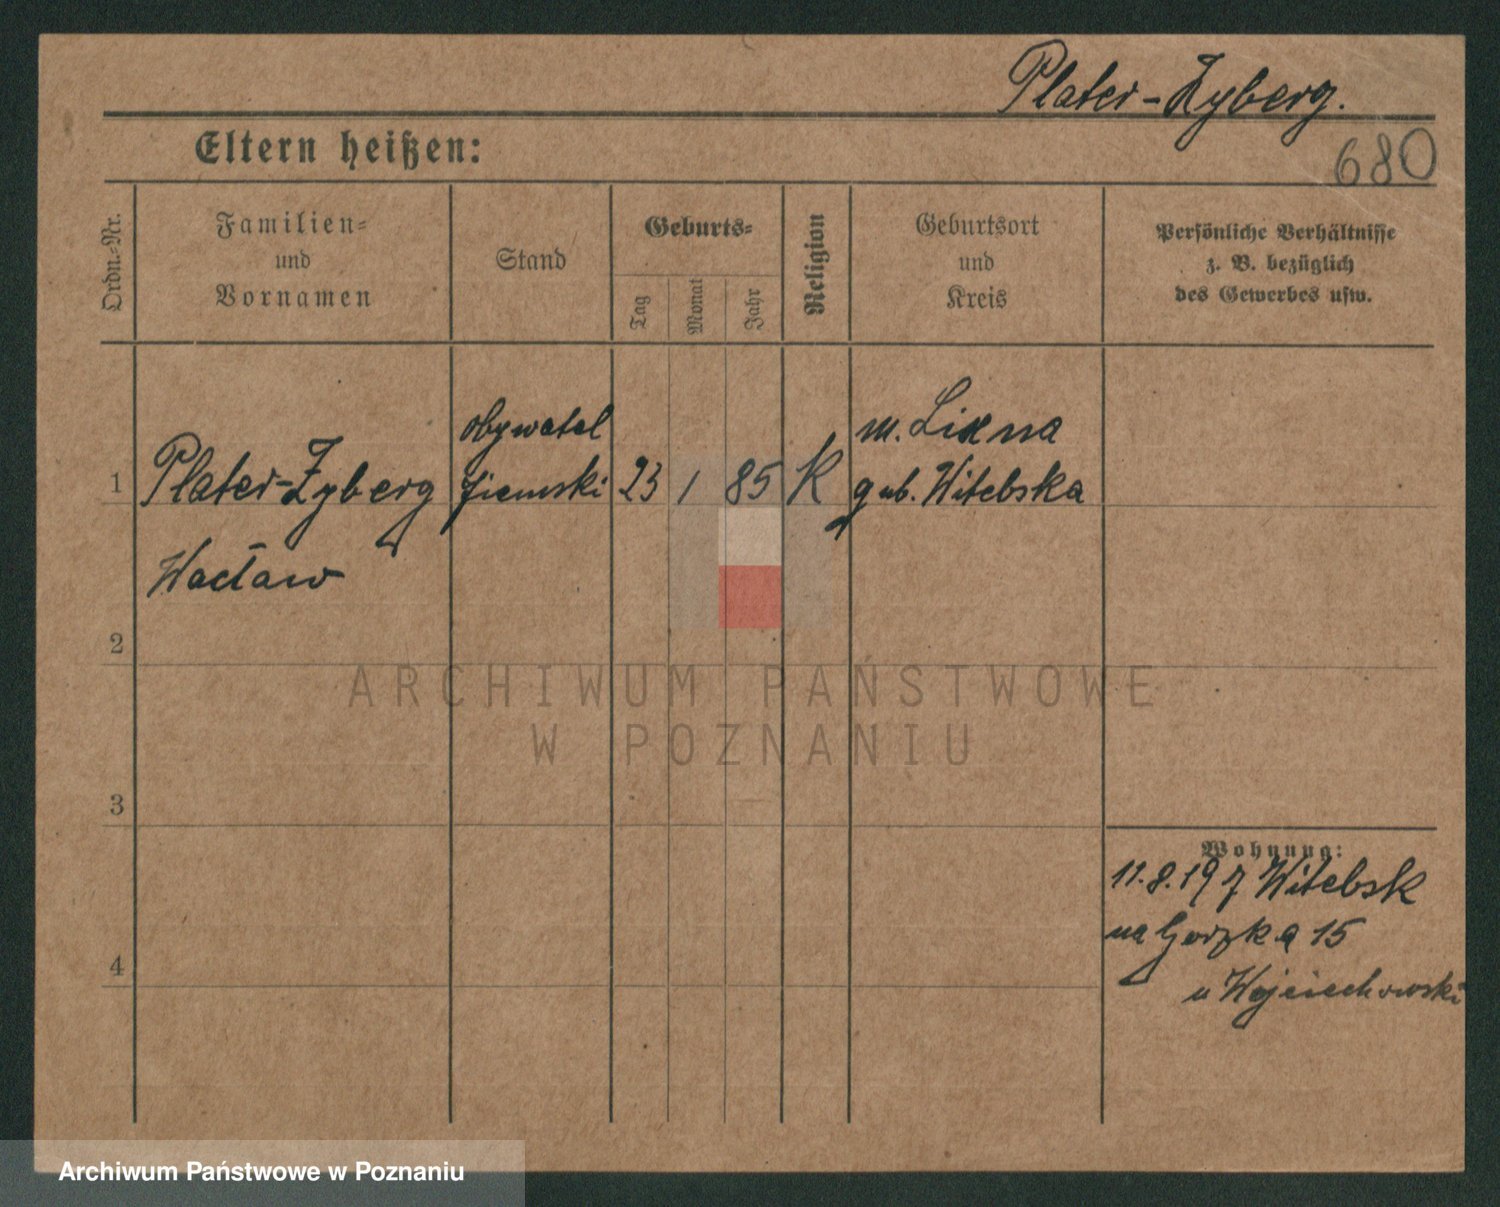 Plater-Zyberg.
Eltern heißen:
680
Ordn.-Nr.
Familien-
und
Vornamen
Stand
Geburts-
Tag
Monat
Jahr
Religion
Geburtsort
und
Kreis
Persönliche Verhältnisse
z. B. bezüglich
des Gewerbes usw.
1
Plater-Zyberg
Wacław
obywatel
ziemski
23
1
85
K
m. Likna
gub. Witebska
2
3
4
Wohnung:
11.8.19 z Witebsk
na Gorzka 15
u Wojciechowski
ARCHIWUM PAŃSTWOWE
W POZNANIU
Archiwum Państwowe w Poznaniu